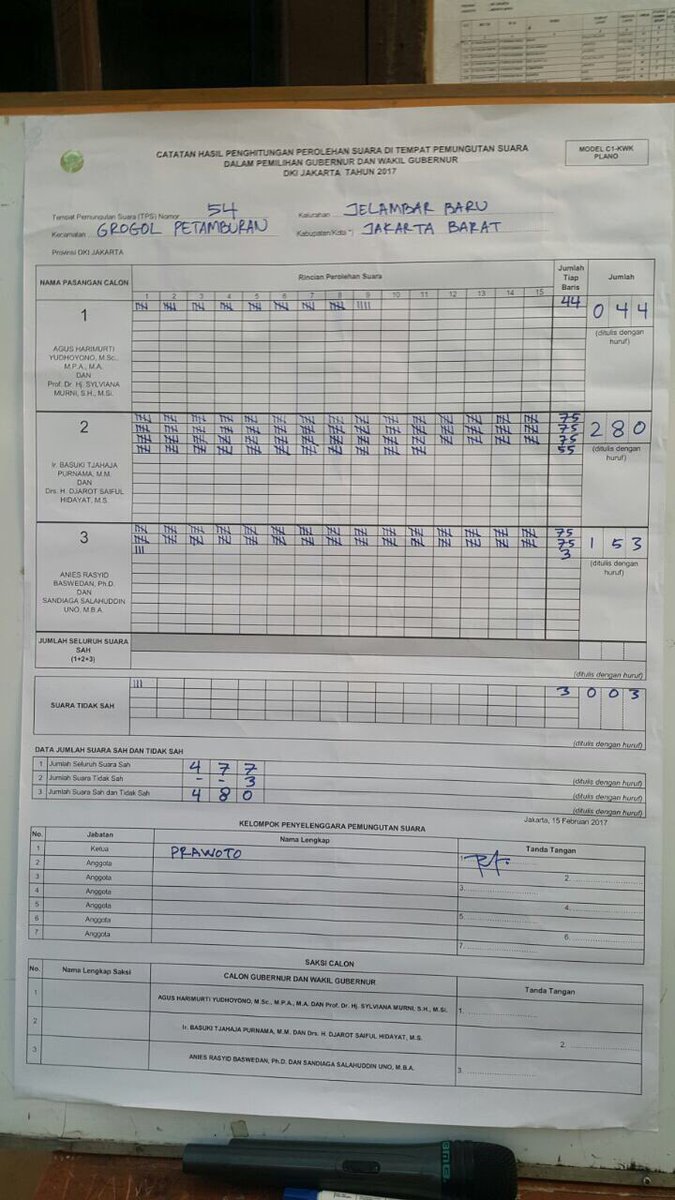 CATATAN HASIL PENGHITUNGAN PEROLEHAN SUARA DI TEMPAT PEMUNGUTAN SUARA
DALAM PEMILIHAN GUBERNUR DAN WAKIL GUBERNUR
DKI JAKARTA TAHUN 2017
MODEL C1-KWK
PLANO
Tempat Pemungutan Suara (TPS) Nomor 54 Kelurahan JELAMBAR BARU
Kecamatan GROGOL PETAMBURAN Kabupaten/Kota *) JAKARTA BARAT
Provinsi DKI JAKARTA
NAMA PASANGAN CALON Rincian Perolehan Suara Jumlah Tiap Baris Jumlah
1 2 3 4 5 6 7 8 9 10 11 12 13 14 15
1 44 044
(ditulis dengan huruf)
AGUS HARIMURTI
YUDHOYONO, M.Sc.,
M.P.A., M.A.
DAN
Prof. Dr. Hj. SYLVIANA
MURNI, S.H., M.Si.
2 75 280
75
75
55
(ditulis dengan huruf)
Ir. BASUKI TJAHAJA
PURNAMA, M.M.
DAN
Drs. H. DJAROT SAIFUL
HIDAYAT, M.S.
3 75 153
75
3
(ditulis dengan huruf)
ANIES RASYID
BASWEDAN, Ph.D.
DAN
SANDIAGA SALAHUDDIN
UNO, M.B.A.
JUMLAH SELURUH SUARA
SAH
(1+2+3)
(ditulis dengan huruf)
SUARA TIDAK SAH 3 003
(ditulis dengan huruf)
DATA JUMLAH SUARA SAH DAN TIDAK SAH
1 Jumlah Seluruh Suara Sah 477
(ditulis dengan huruf)
2 Jumlah Suara Tidak Sah - - 3
(ditulis dengan huruf)
3 Jumlah Suara Sah dan Tidak Sah 480
(ditulis dengan huruf)
Jakarta, 15 Februari 2017
KELOMPOK PENYELENGGARA PEMUNGUTAN SUARA
No. Jabatan Nama Lengkap Tanda Tangan
1 Ketua PRAWOTO 1.
2 Anggota 2.
3 Anggota 3.
4 Anggota 4.
5 Anggota 5.
6 Anggota 6.
7 Anggota 7.
SAKSI CALON
No. Nama Lengkap Saksi CALON GUBERNUR DAN WAKIL GUBERNUR Tanda Tangan
1 AGUS HARIMURTI YUDHOYONO, M.Sc., M.P.A., M.A. DAN Prof. Dr. Hj. SYLVIANA MURNI, S.H., M.Si. 1.
2 Ir. BASUKI TJAHAJA PURNAMA, M.M. DAN Drs. H. DJAROT SAIFUL HIDAYAT, M.S. 2.
3 ANIES RASYID BASWEDAN, Ph.D. DAN SANDIAGA SALAHUDDIN UNO, M.B.A. 3.